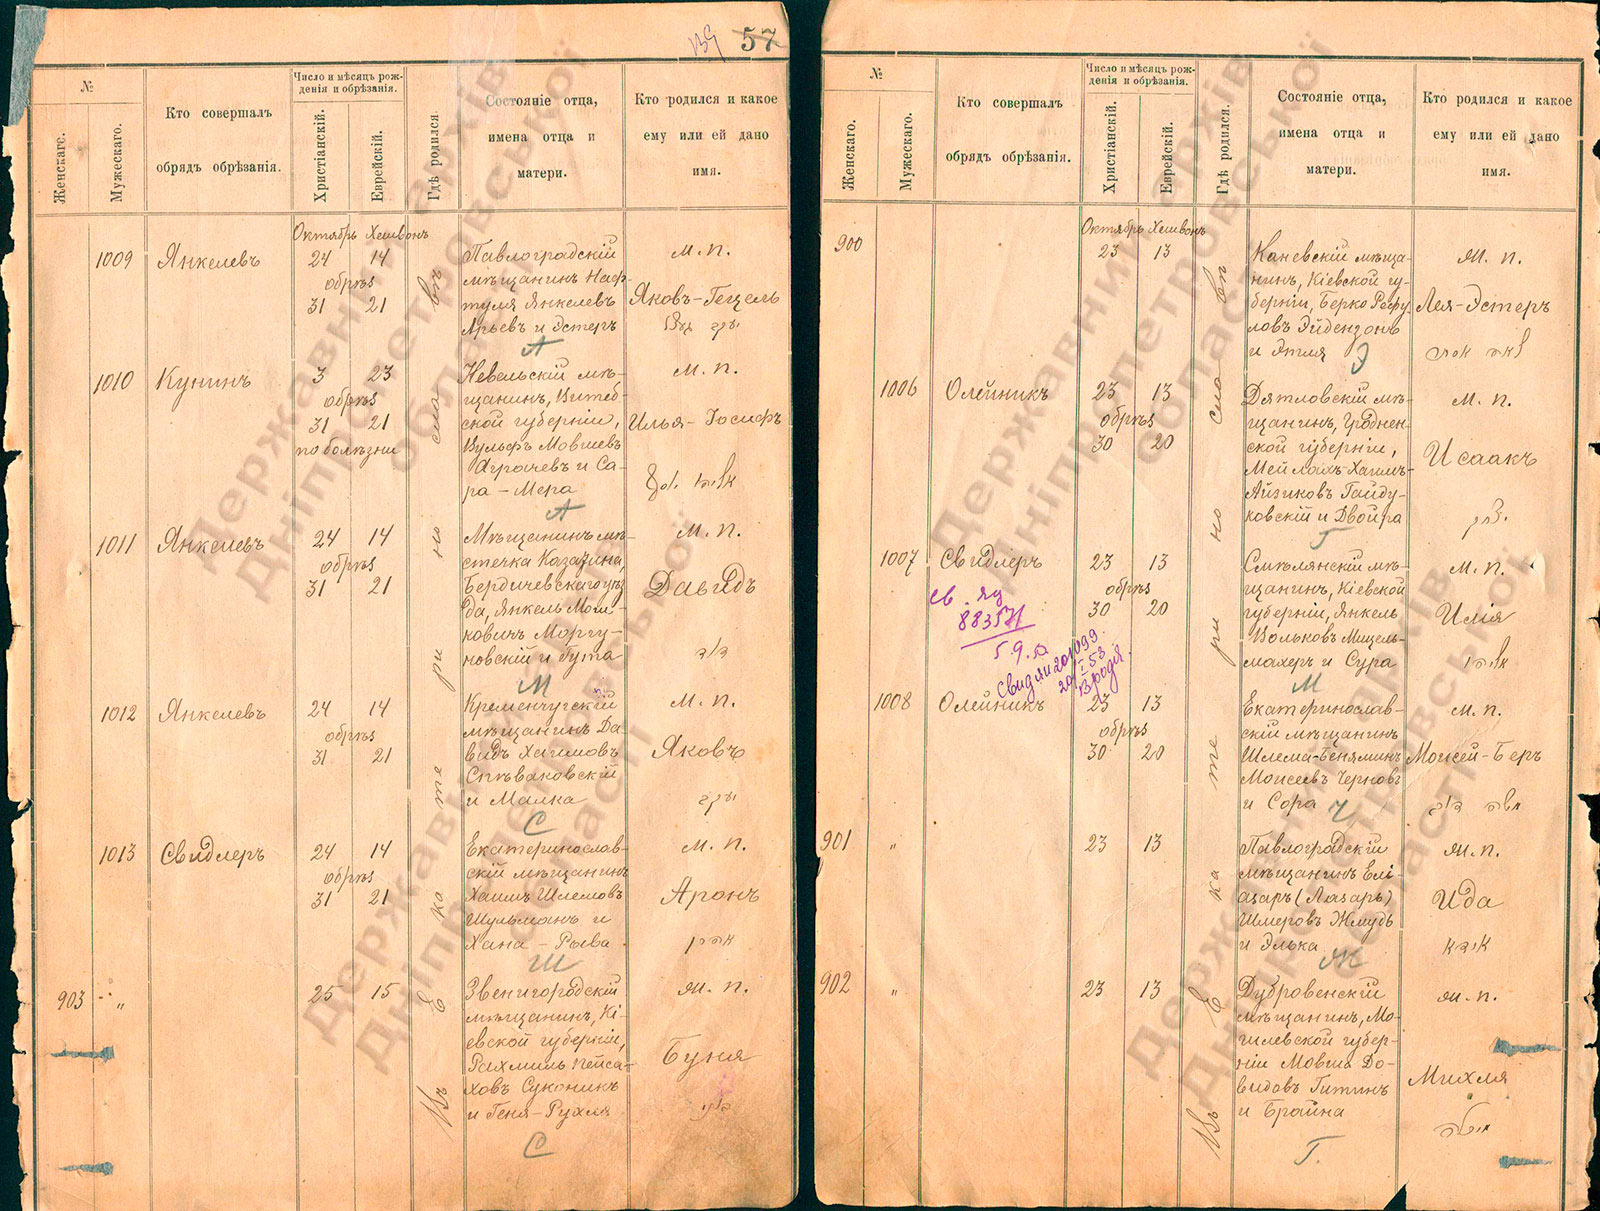 57
№
Женскаго.
Мужескаго.
Кто совершалъ
обрядъ обрѣзанія.
Число и мѣсяцъ рож-
денія и обрѣзанія.
Христіанскій.
Еврейскій.
Гдѣ родился.
Состояніе отца,
имена отца и
матери.
Кто родился и какое
ему или ей дано
имя.
Въ Екатеринославѣ
Октябрь Хешвонъ
1009 Янкелевъ 24 14
обрѣз
31 21
Павлоградскій
мѣщанинъ Наф-
туля Янкелевъ
Арьевъ и Эстеръ
А
м. п.
Яковъ-Гецель
1010 Кунинъ 3 23
обрѣз
31 21
по болѣзни
Невельскій мѣ-
щанинъ, Витеб-
ской губерніи,
Вульфъ Мовшевъ
Агроичевъ и Са-
ра-Мера
А
м. п.
Илья-Іосифъ
1011 Янкелевъ 24 14
обрѣз
31 21
Мѣщанинъ мѣ-
стечка Казатина,
Бердичевскаго уѣз-
да, Янкель Мош-
ковичъ Моргу-
новскій и Гута
М
м. п.
Давидъ
דוד
1012 Янкелевъ 24 14
обрѣз
31 21
Кременчугскій
мѣщанинъ Да-
видъ Хаимовъ
Спѣваковскій
и Малка
С
м. п.
Яковъ
יעקב
1013 Свидлеръ 24 14
обрѣз
31 21
Екатеринослав-
скій мѣщанинъ
Хаимъ Шлемовъ
Шульманъ и
Хана-Рыва
Ш
м. п.
Аронъ
אהרן
903 " 25 15
Звенигородскій
мѣщанинъ, Кі-
евской губерніи,
Рахмиль Пейса-
ховъ Суконикъ
и Геня-Рухля
С
м. п.
Буня
№
Женскаго.
Мужескаго.
Кто совершалъ
обрядъ обрѣзанія.
Число и мѣсяцъ рож-
денія и обрѣзанія.
Христіанскій.
Еврейскій.
Гдѣ родился.
Состояніе отца,
имена отца и
матери.
Кто родился и какое
ему или ей дано
имя.
Въ Екатеринославѣ
Октябрь Хешвонъ
900 23 13
Каневскій мѣща-
нинъ, Кіевской гу-
берніи, Берко Рефу-
ловъ Эйдензонъ
и Этля
Э
м. п.
Лея-Эстеръ
לאה אסתר
1006 Олейникъ 23 13
обрѣз
30 20
Дятловскій мѣ-
щанинъ, Гроднен-
ской губерніи,
Мейлахъ-Хаимъ-
Айзиковъ Гайду-
ковскій и Двойра
Г
м. п.
Исаакъ
יצחק
1007 Свидлеръ 23 13
обрѣз
30 20
Смѣлянскій мѣ-
щанинъ, Кіевской
губерніи, Янкель
Вольковъ Мицель-
махеръ и Сура
М
м. п.
Илія
אליהו
1008 Олейникъ 23 13
обрѣз
30 20
Екатеринослав-
скій мѣщанинъ
Шлема-Беняминъ
Моисеевъ Черновъ
и Сора
Ч
м. п.
Моисей-Беръ
משה דוב
901 " 23 13
Павлоградскій
мѣщанинъ Елі-
азаръ (Лазарь)
Шмеровъ Жмудь
и Элька
Ж
м. п.
Ида
902 " 23 13
Дубровенскій
мѣщанинъ, Мо-
гилевской губер-
ніи Мовша До-
видовъ Гитинъ
и Брайна
Г.
м. п.
Михля
Державний архів
Дніпропетровської
області